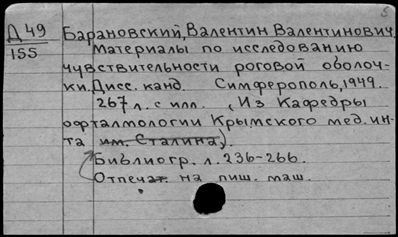 Д 49
155
Барановский, Валентин Валентинович.
Материалы по исследованию
чувствительности роговой оболоч-
ки. Дисс. канд. Симферополь, 1949.
267 л. с илл. (Из Кафедры
офталмологии Крымского мед. ин-
та им. Сталина).
Библиогр. л. 236-266.
Отпечат. на пиш. маш.